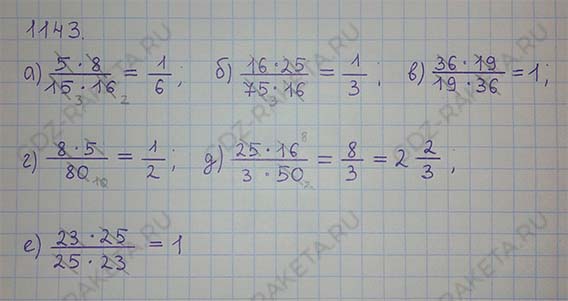 1143.
а) 5 · 8 / 15 · 16 = 1/6 ; б) 16 · 25 / 75 · 16 = 1/3 ; в) 36 · 19 / 19 · 36 = 1;
3 2 3
г) 8 · 5 / 80 = 1/2 ; д) 25 · 16 / 3 · 50 = 8/3 = 2 2/3 ;
10 8 2
е) 23 · 25 / 25 · 23 = 1
GDZ-RAKETA.RU